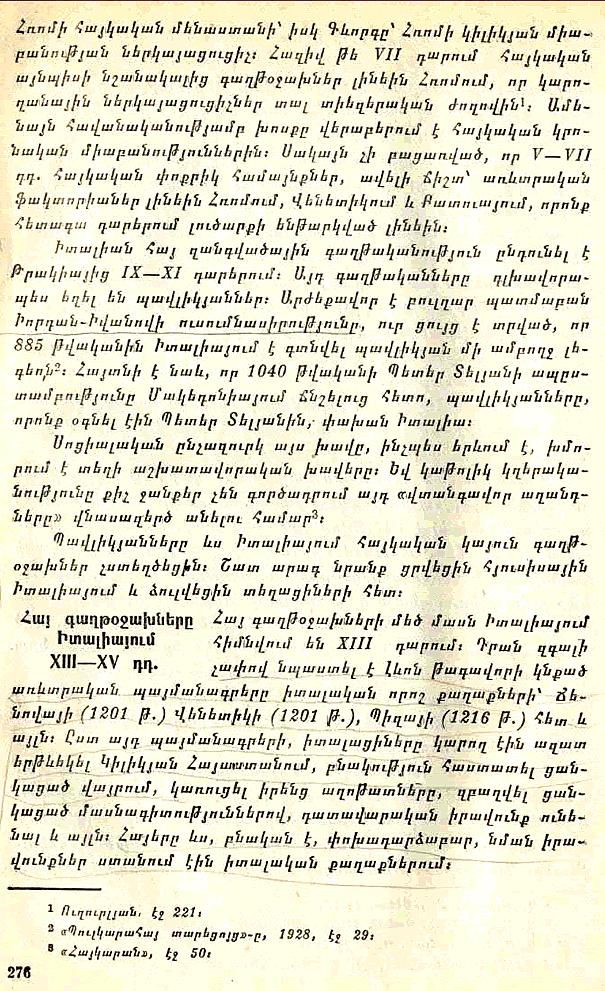 Հռոմի հայկական մենաստանի՝ իսկ Գևորգը՝ Հռոմի կիլիկյան միա-
բանության ներկայացուցիչ։ Հազիվ թե VII դարում հայկական
այնպիսի նշանակալից գաղթօջախներ լինեին Հռոմում, որ կարո-
ղանային ներկայացուցիչներ տալ տիեզերական ժողովին¹։ Ամե-
նայն հավանականությամբ խոսքը վերաբերում է հայկական կրո-
նական միաբանություններին։ Սակայն չի բացառված, որ V—VII
դդ. հայկական փոքրիկ համայնքներ, ավելի ճիշտ՝ առևտրական
ֆակտորիաներ լինեին Հռոմում, Վենետիկում և Բատուայում, որոնք
հետագա դարերում լուծարքի ենթարկված լինեին։
Իտալիան հայ զանգվածային գաղթականություն ընդունել է
Թրակիայից IX—XI դարերում։ Այդ գաղթականները գլխավորա-
պես եղել են պավլիկյաններ։ Արժեքավոր է բուլղար պատմաբան
Իորդան-Իվանովի ուսումնասիրությունը, ուր ցույց է տրված, որ
885 թվականին Իտալիայում է գտնվել պավլիկյան մի ամբողջ լե-
գեոն²։ Հայտնի է նաև, որ 1040 թվականի Պետեր Տելյանի ապըս-
տամբությունը Մակեդոնիայում ճնշելուց հետո, պավլիկյանները,
որոնք օգնել էին Պետեր Տելյանին, փախան Իտալիա։
Սոցիալական ընչազուրկ այս խավը, ինչպես երևում է, խմո-
րում է տեղի աշխատավորական խավերը։ Եվ կաթոլիկ կղերակա-
նությունը քիչ ջանքեր չեն գործադրում այդ «վտանգավոր աղանդ-
ները» վնասազերծ անելու համար³։
Պավլիկյանները ևս Իտալիայում հայկական կայուն գաղթ-
օջախներ չստեղծեցին։ Շատ արագ նրանք ցրվեցին հյուսիսային
Իտալիայում և ձուլվեցին տեղացիների հետ։
Հայ գաղթօջախները
Իտալիայում
XIII—XV դդ.
Հայ գաղթօջախների մեծ մասն Իտալիայում
հիմնվում են XIII դարում։ Դրան զգալի
չափով նպաստել է Լևոն թագավորի կնքած
առևտրական պայմանագրերը իտալական որոշ քաղաքների՝ Ճե-
նովայի (1201 թ.) Վենետիկի (1201 թ.), Պիզայի (1216 թ.) հետ և
այլն։ Ըստ այդ պայմանագրերի, իտալացիները կարող էին ազատ
երթևեկել Կիլիկյան Հայաստանում, բնակություն հաստատել ցան-
կացած վայրում, կառուցել իրենց աղոթատները, զբաղվել ցան-
կացած մասնագիտություններով, դատավարական իրավունք ունե-
նալ և այլն։ Հայերը ևս, բնական է, փոխադարձաբար, նման իրա-
վունքներ ստանում էին իտալական քաղաքներում։
¹ Ուղուրլյան, էջ 221։
² «Պուլկարահայ տարեցույց»-ը, 1928, էջ 29։
³ «Հայկարան», էջ 50։
276